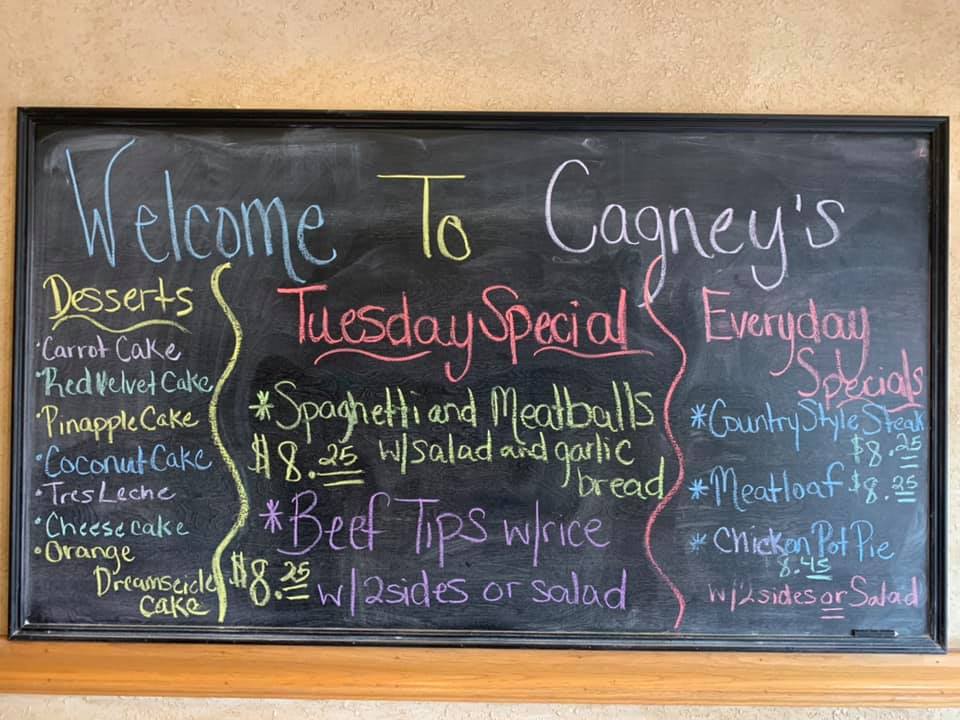 Welcome To Cagney's
Desserts
·Carrot Cake
·Red Velvet Cake
·Pinapple Cake
·Coconut Cake
·Tres Leche
·Cheesecake
·Orange
Dreamseicle
cake
Tuesday Special
*Spaghetti and Meatballs
$8.25 w/salad and garlic
bread
*Beef Tips w/rice
$8.25 w/2sides or salad
Everyday
Specials
*Country Style Steak
$8.25
*Meatloaf $8.25
*Chicken Pot Pie
8.45
w/2sides or Salad